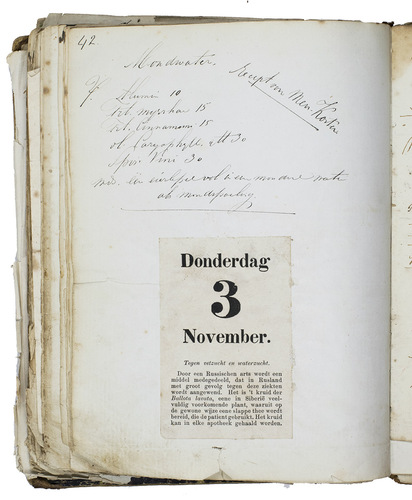 42.
Mondwater.
Recept van Mevr. Koster
R. Thymi 10
Tct. myrrhae 15
Tct. Cinnamomi 15
ol. Caryophyll. gtt 30
Spir. Vini 30
een eierlepel vol in een
als mondspoeling
Donderdag
3
November.
Tegen vetzucht en waterzucht.
Door een Russischen arts wordt een
middel medegedeeld, dat in Rusland
met groot gevolg tegen deze ziekten
wordt aangewend. Het is 't kruid der
Ballota lanata, eene in Siberië veel-
vuldig voorkomende plant, waaruit op
de gewone wijze eene slappe thee wordt
bereid, die de patient gebruikt. Het kruid
kan in elke apotheek gehaald worden.